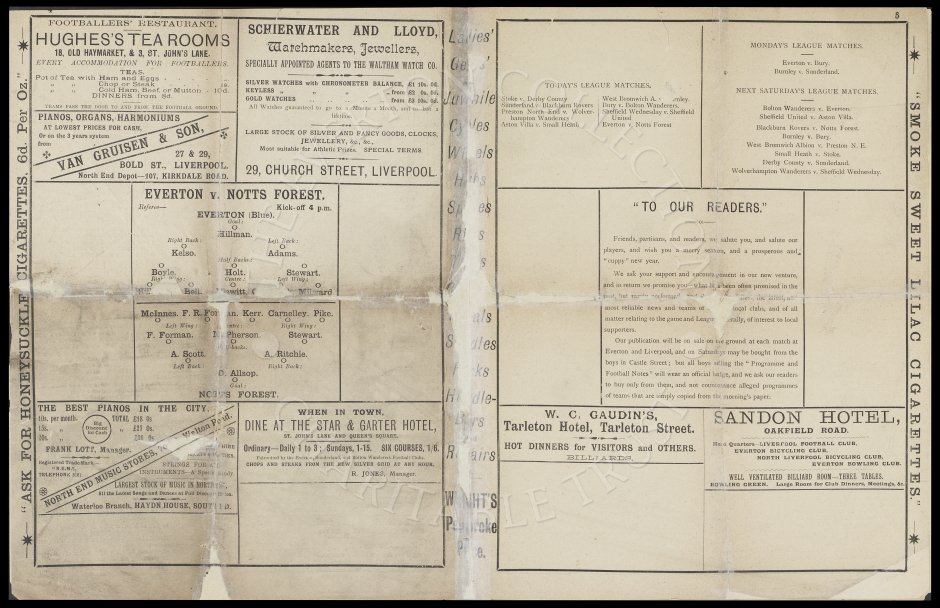 "ASK FOR HONEYSUCKLE CIGARETTES. 6d. Per Oz."
FOOTBALLERS' RESTAURANT.
HUGHES'S TEA ROOMS
18, OLD HAYMARKET, & 3, ST. JOHN'S LANE.
EVERY ACCOMMODATION FOR FOOTBALLERS.
TEAS.
Pot of Tea with Ham and Eggs
" " Chop or Steak 1s.
" " Cold Ham, Beef, or Mutton 10d.
DINNERS from 8d.
TRAMS PASS THE DOOR TO AND FROM THE FOOTBALL GROUND.
PIANOS, ORGANS, HARMONIUMS
AT LOWEST PRICES FOR CASH,
Or on the 3 years system
from
VAN GRUISEN & SON,
27 & 29,
BOLD ST., LIVERPOOL.
North End Depot—107, KIRKDALE ROAD.
SCHIERWATER AND LLOYD,
Watchmakers, Jewellers,
SPECIALLY APPOINTED AGENTS TO THE WALTHAM WATCH CO.
SILVER WATCHES with CHRONOMETER BALANCE, £1 10s. 0d.
KEYLESS " " " from £2 0s. 0d.
GOLD WATCHES from £3 10s. 0d.
All Watches guaranteed to go to a Minute a Month, and to last a
lifetime.
LARGE STOCK OF SILVER AND FANCY GOODS, CLOCKS,
JEWELLERY, &c., &c.
Most suitable for Athletic Prizes. SPECIAL TERMS
29, CHURCH STREET, LIVERPOOL.
EVERTON v. NOTTS FOREST.
Referee— Kick-off 4 p.m.
EVERTON (Blue).
Goal:
Hillman.
Right Back: Left Back:
Kelso. Adams.
Half Backs:
Boyle. Holt. Stewart.
Centre: Left Wing:
Bell. Milward
McInnes. F. R. Forman. Kerr. Carnelley. Pike.
Left Wing: Centre: Right Wing:
F. Forman. McPherson. Stewart.
A. Scott. A. Ritchie.
Left Back: Right Back:
D. Allsop.
Goal:
NOTTS FOREST.
THE BEST PIANOS IN THE CITY.
10s. per month. TOTAL £18 0s
15s. £27 0s.
20s.
Big Discount for Cash
FRANK LOTT, Manager.
Registered Trade Mark—
"N.E.M.S."
TELEPHONE
NORTH END MUSIC STORES, Walton Road.
STRINGS FOR ALL
INSTRUMENTS—A Speciality.
LARGEST STOCK OF MUSIC IN NORTH END,
All the Latest Songs and Dances at Full Discount Prices.
Waterloo Branch, HAYDN HOUSE, SOUTH RD.
WHEN IN TOWN,
DINE AT THE STAR & GARTER HOTEL,
ST. JOHNS LANE AND QUEEN'S SQUARE.
Ordinary—Daily 1 to 3; Sundays, 1-15. SIX COURSES, 1/6.
Patronised by the Everton, Sunderland, and Bolton Wanderers Football Clubs.
CHOPS AND STEAKS FROM THE NEW SILVER GRID AT ANY HOUR.
R. JONES, Manager.
Ladies'
Gents'
Juvenile
Cycles
Wheels
Hubs
Spokes
Rims
Pedals
Saddles
Handle-
Bars
Repairs
WRIGHT'S
Pembroke
Place.
5
TO-DAY'S LEAGUE MATCHES.
Stoke v. Derby County
Sunderland v. Blackburn Rovers
Preston North End v. Wolver-
hampton Wanderers
Aston Villa v. Small Heath
West Bromwich A. v. Burnley.
Bury v. Bolton Wanderers.
Sheffield Wednesday v. Sheffield
United
Everton v. Notts Forest
MONDAY'S LEAGUE MATCHES.
Everton v. Bury.
Burnley v. Sunderland.
NEXT SATURDAY'S LEAGUE MATCHES.
Bolton Wanderers v. Everton.
Sheffield United v. Aston Villa.
Blackburn Rovers v. Notts Forest.
Burnley v. Bury.
West Bromwich Albion v. Preston N. E.
Small Heath v. Stoke.
Derby County v. Sunderland.
Wolverhampton Wanderers v. Sheffield Wednesday.
"TO OUR READERS."
Friends, partisans, and readers, we salute you, and salute our
players, and wish you a merry season, and a prosperous and
"cuppy" new year.
We ask your support and encouragement in our new venture,
and in return we promise you—what has been often promised in the
past, but rarely performed
most reliable news and teams of local clubs, and of all
matter relating to the game and League generally, of interest to local
supporters.
Our publication will be on sale on the ground at each match at
Everton and Liverpool, and on Saturdays may be bought from the
boys in Castle Street; but all boys selling the "Programme and
Football Notes" will wear an official badge, and we ask our readers
to buy only from them, and not countenance alleged programmes
of teams that are simply copied from the morning's paper.
W. C. GAUDIN'S,
Tarleton Hotel, Tarleton Street.
HOT DINNERS for VISITORS and OTHERS.
BILLIARDS.
SANDON HOTEL,
OAKFIELD ROAD.
Head Quarters—LIVERPOOL FOOTBALL CLUB,
EVERTON BICYCLING CLUB,
NORTH LIVERPOOL BICYCLING CLUB,
EVERTON BOWLING CLUB.
WELL VENTILATED BILLIARD ROOM—THREE TABLES.
BOWLING GREEN. Large Room for Club Dinners, Meetings, &c.
"SMOKE SWEET LILAC CIGARETTES."